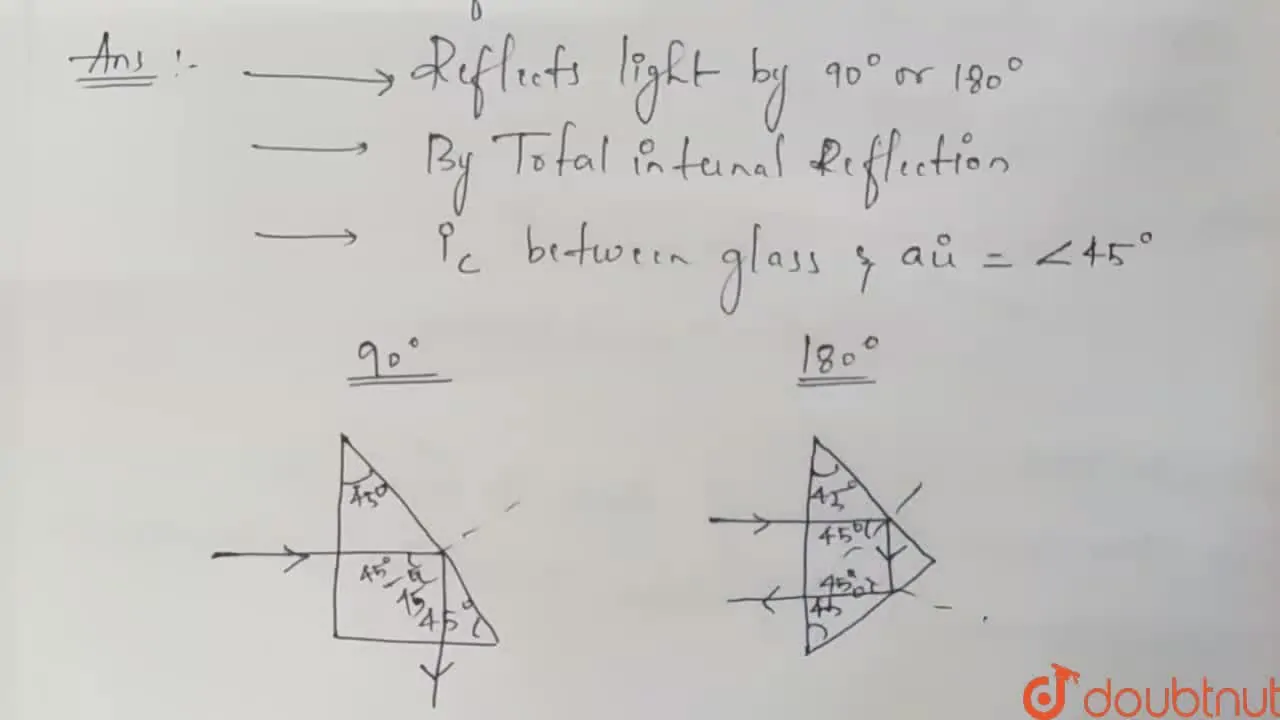 Ans :- → Reflects light by 90° or 180°
→ By Total internal Reflection
→ ic between glass & air = <45°
90° 180°
45° 45°
45° 45°
45 45° 45°
45° 45
doubtnut